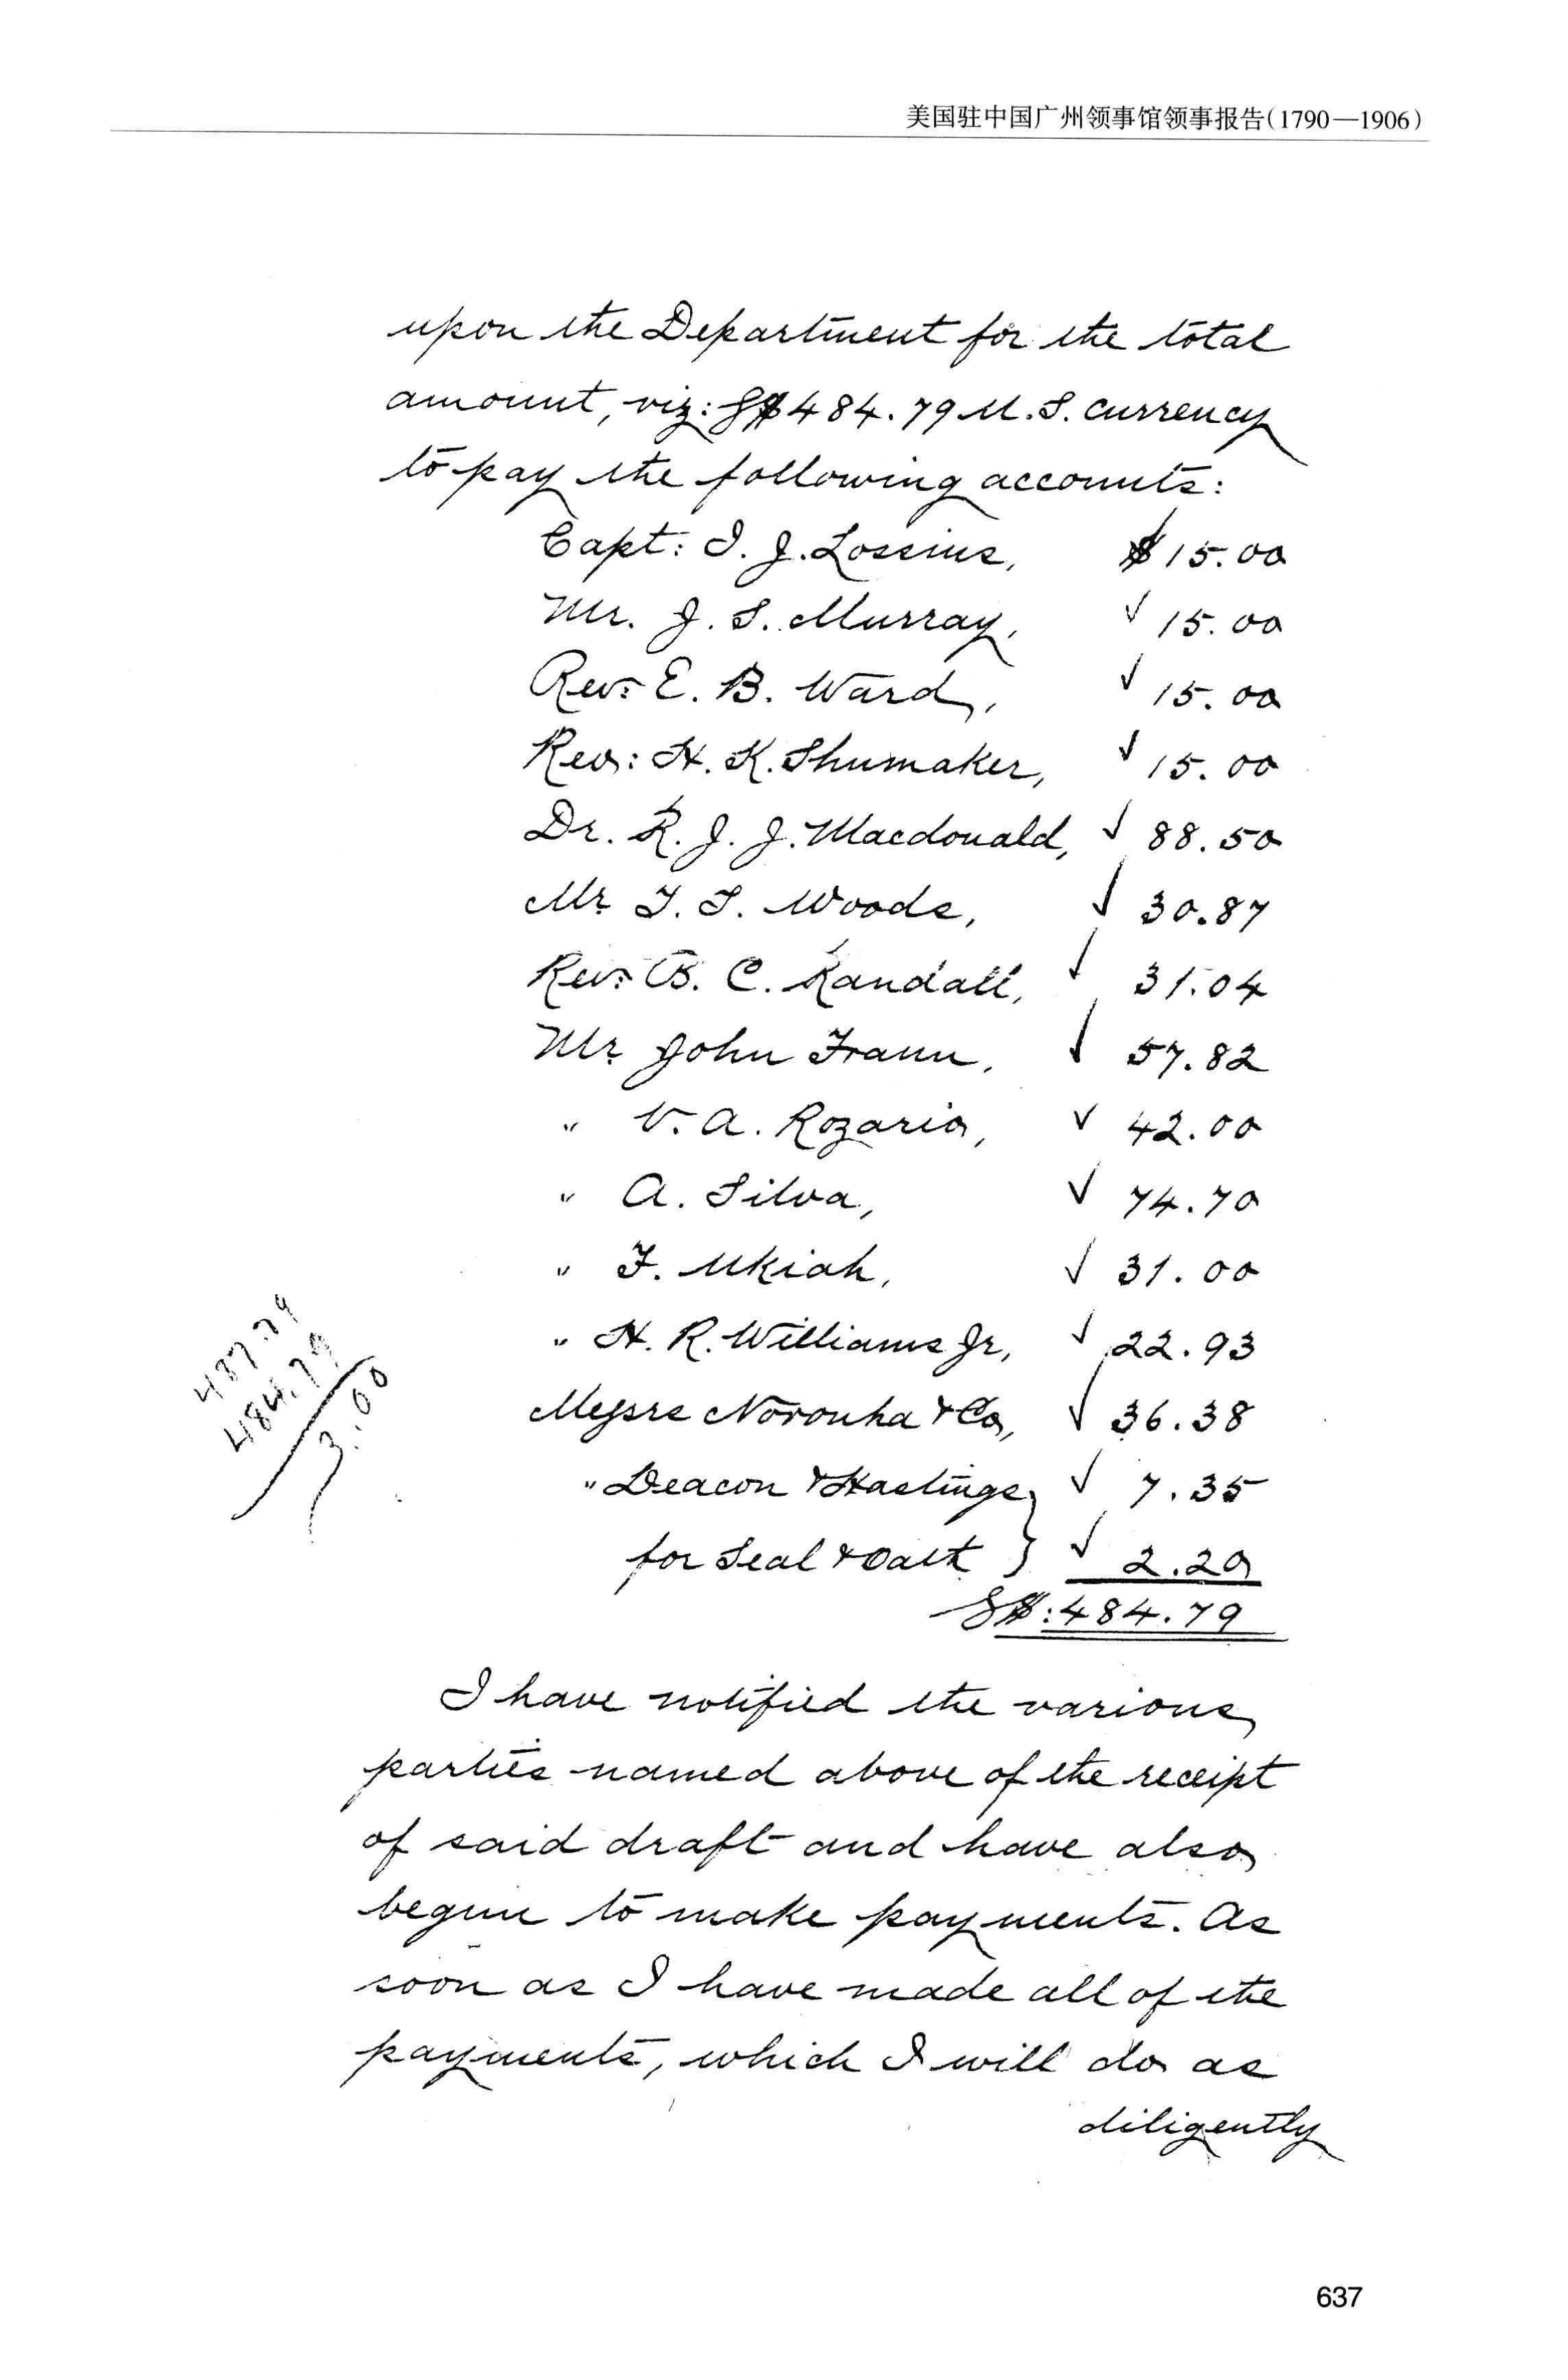 美国驻中国广州领事馆领事报告(1790—1906)
upon the Department for the total
amount, viz: G$484.79 U.S. currency
to pay the following accounts:
Capt: I. J. Lossius, $15.00
Mr. J. S. Murray, √ 15.00
Rev: E. B. Ward, √ 15.00
Rev: H. K. Shumaker, √ 15.00
Dr. R. J. J. Macdonald, √ 88.50
Mr. T. S. Woods, √ 30.87
Rev: B. C. Randall, √ 31.04
Mr. John Fraun, √ 57.82
" V. A. Rozario, √ 42.00
" A. Silva, √ 74.70
" F. Ukiah, √ 31.00
" H. R. Williams Jr, √ 22.93
Messrs Noronha & Co, √ 36.38
" Deacon & Hastings, √ 7.35
for Seal & Oath } √ 2.20
G$:484.79
487.79
484.79
3.00
I have notified the various
parties named above of the receipt
of said draft and have also
begun to make payments. As
soon as I have made all of the
payments, which I will do as
diligently
637